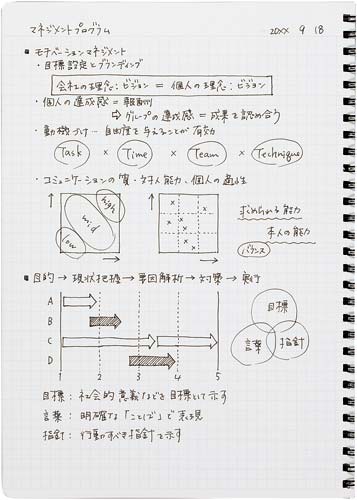 マネジメントプログラム 20XX 9 18
■ モチベーションマネジメント
・目標設定とブランディング
会社の理念:ビジョン = 個人の理念:ビジョン
・個人の達成感 = 報酬制
⇨ グループの達成感 = 成果を認め合う
・動機づけ… 自由度を与えることが有効
Task × Time × Team × Technique
・コミュニケーションの質・対人能力、個人の適性
high
mid
low
求められる能力
本人の能力
バランス
■ 目的 → 現状把握 → 要因解析 → 対策 → 実行
A
B
C
D
1 2 3 4 5
目標
言葉 指針
目標: 社会的意義などを目標として示す
言葉: 明確な「ことば」で表現
指針: 行動すべき指針を示す